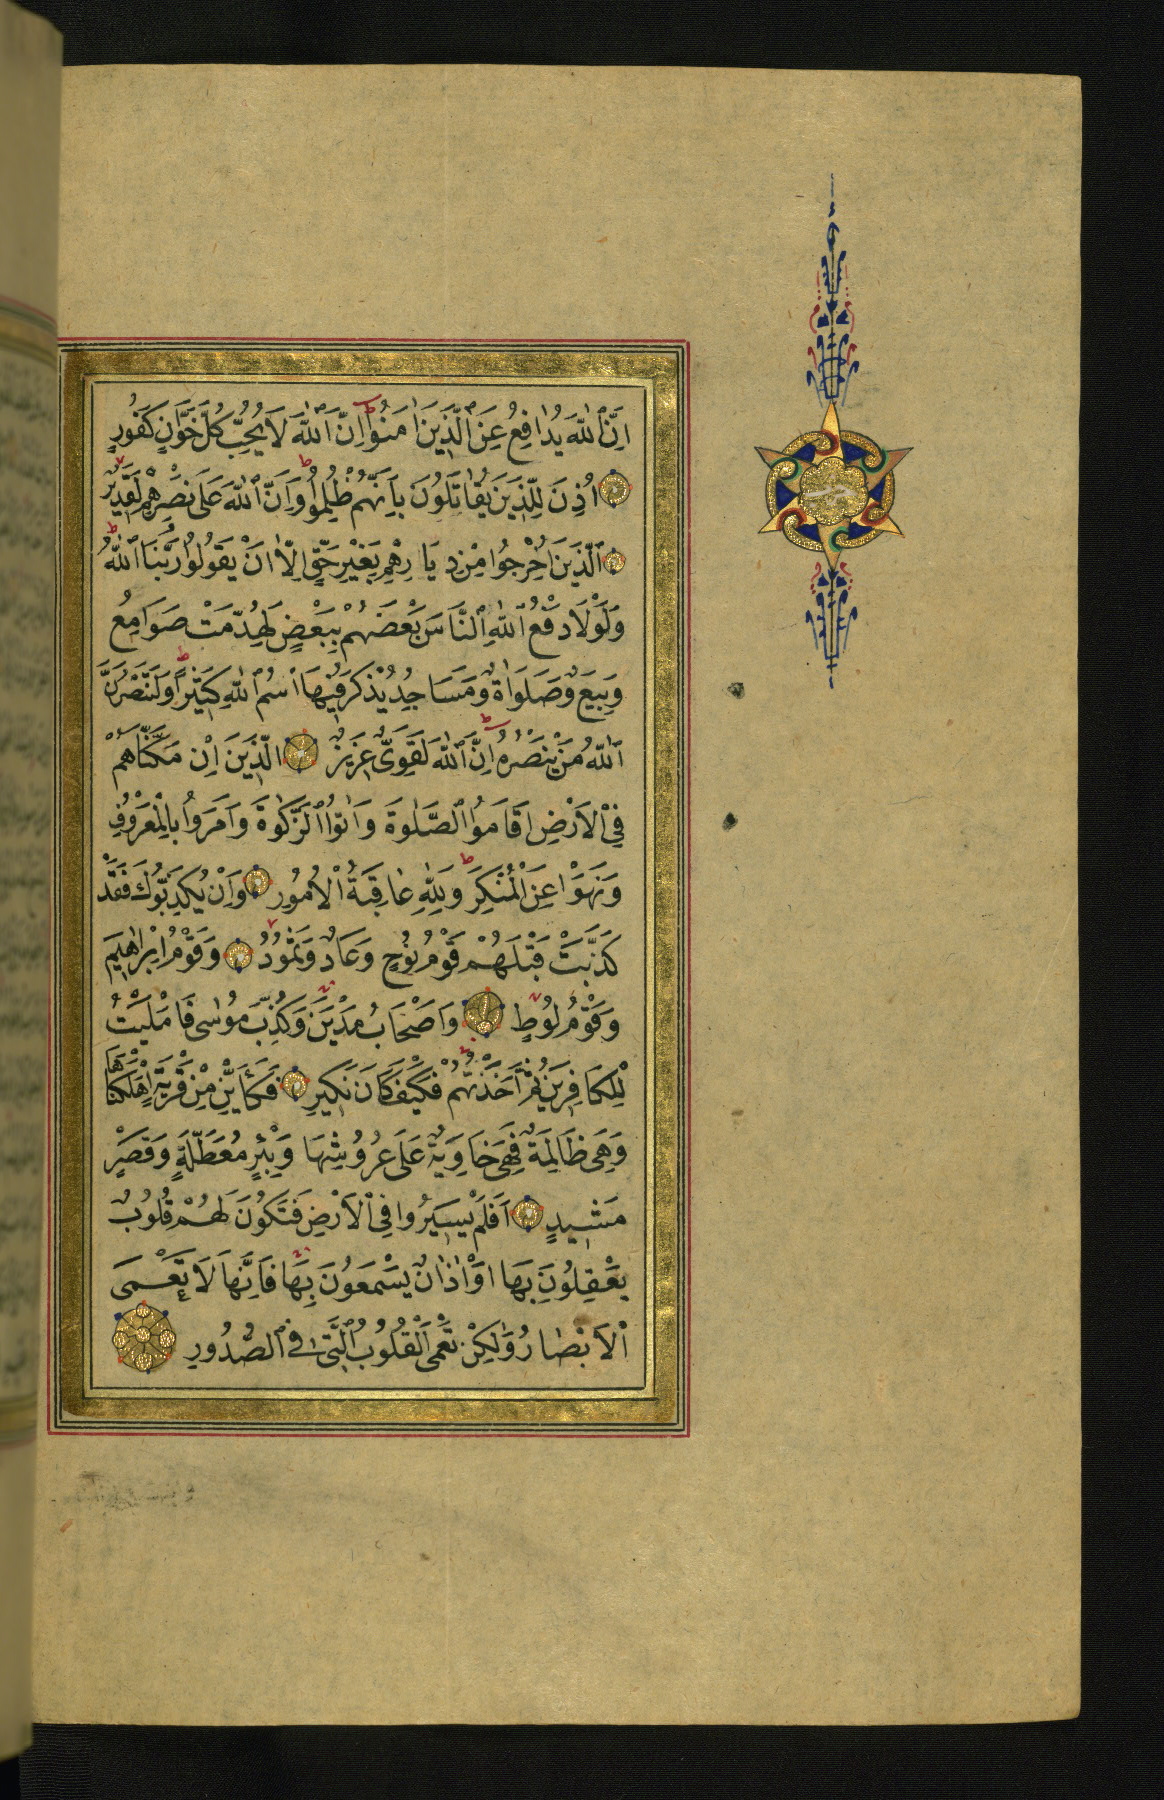 اِنَّ ٱللّٰهَ يُدَافِعُ عَنِ ٱلَّذِينَ اٰمَنُوا اِنَّ ٱللّٰهَ لَا يُحِبُّ كُلَّ خَوَّانٍ كَفُورٍ
اُذِنَ لِلَّذِينَ يُقَاتَلُونَ بِاَنَّهُمْ ظُلِمُوا وَاِنَّ ٱللّٰهَ عَلَى نَصْرِهِمْ لَقَدِيرٌ
ٱلَّذِينَ اُخْرِجُوا مِنْ دِيَارِهِمْ بِغَيْرِ حَقٍّ اِلَّا اَنْ يَقُولُوا رَبُّنَا ٱللّٰهُ
وَلَوْلَا دَفْعُ ٱللّٰهِ ٱلنَّاسَ بَعْضَهُمْ بِبَعْضٍ لَهُدِّمَتْ صَوَامِعُ
وَبِيَعٌ وَصَلَوَاةٌ وَمَسَاجِدُ يُذْكَرُ فِيهَا ٱسْمُ ٱللّٰهِ كَثِيرًا وَلَيَنْصُرَنَّ
ٱللّٰهُ مَنْ يَنْصُرُهُ اِنَّ ٱللّٰهَ لَقَوِىٌّ عَزِيزٌ الَّذِينَ اِنْ مَكَّنَّاهُمْ
فِى ٱلْاَرْضِ اَقَامُوا ٱلصَّلٰوةَ وَاٰتَوُا ٱلزَّكٰوةَ وَاَمَرُوا بِالْمَعْرُوفِ
وَنَهَوْا عَنِ ٱلْمُنْكَرِ وَلِلّٰهِ عَاقِبَةُ ٱلْاُمُورِ وَاِنْ يُكَذِّبُوكَ فَقَدْ
كَذَّبَتْ قَبْلَهُمْ قَوْمُ نُوحٍ وَعَادٌ وَثَمُودُ وَقَوْمُ اِبْرَاهِيمَ
وَقَوْمُ لُوطٍ وَاَصْحَابُ مَدْيَنَ وَكُذِّبَ مُوسٰى فَاَمْلَيْتُ
لِلْكَافِرِينَ ثُمَّ اَخَذْتُهُمْ فَكَيْفَ كَانَ نَكِيرِ فَكَاَيِّنْ مِنْ قَرْيَةٍ اَهْلَكْنَاهَا
وَهِىَ ظَالِمَةٌ فَهِىَ خَاوِيَةٌ عَلَى عُرُوشِهَا وَبِئْرٍ مُعَطَّلَةٍ وَقَصْرٍ
مَشِيدٍ اَفَلَمْ يَسِيرُوا فِى ٱلْاَرْضِ فَتَكُونَ لَهُمْ قُلُوبٌ
يَعْقِلُونَ بِهَا اَوْ اٰذَانٌ يَسْمَعُونَ بِهَا فَاِنَّهَا لَا تَعْمَى
ٱلْاَبْصَارُ وَلٰكِنْ تَعْمَى ٱلْقُلُوبُ ٱلَّتِى فِى ٱلصُّدُورِ